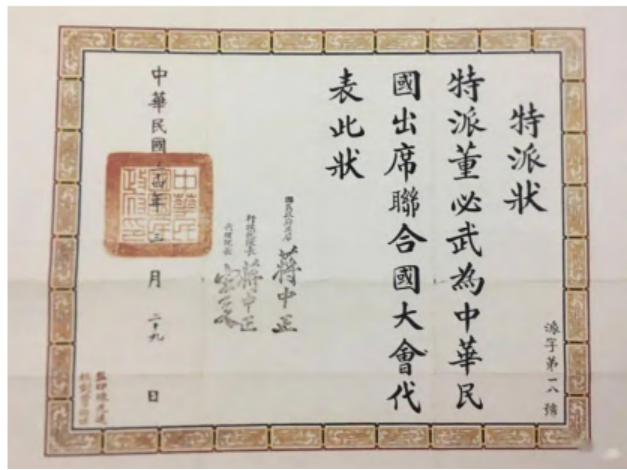 特派狀
特派董必武為中華民
國出席聯合國大會代
表此狀
國民政府主席 蔣中正
行政院院長 蔣中正
代理院長 宋子文
中華民國三十四年三月二十九日
派字第一八號